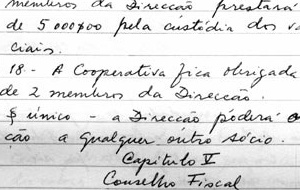 membros da Direcção prestará
de 5 000$00 pela custódia dos va
ciais.
18.- A Cooperativa fica obrigada
de 2 membros da Direcção.
§ único - a Direcção poderá
ção a qualquer outro sócio.
Capítulo V
Conselho Fiscal